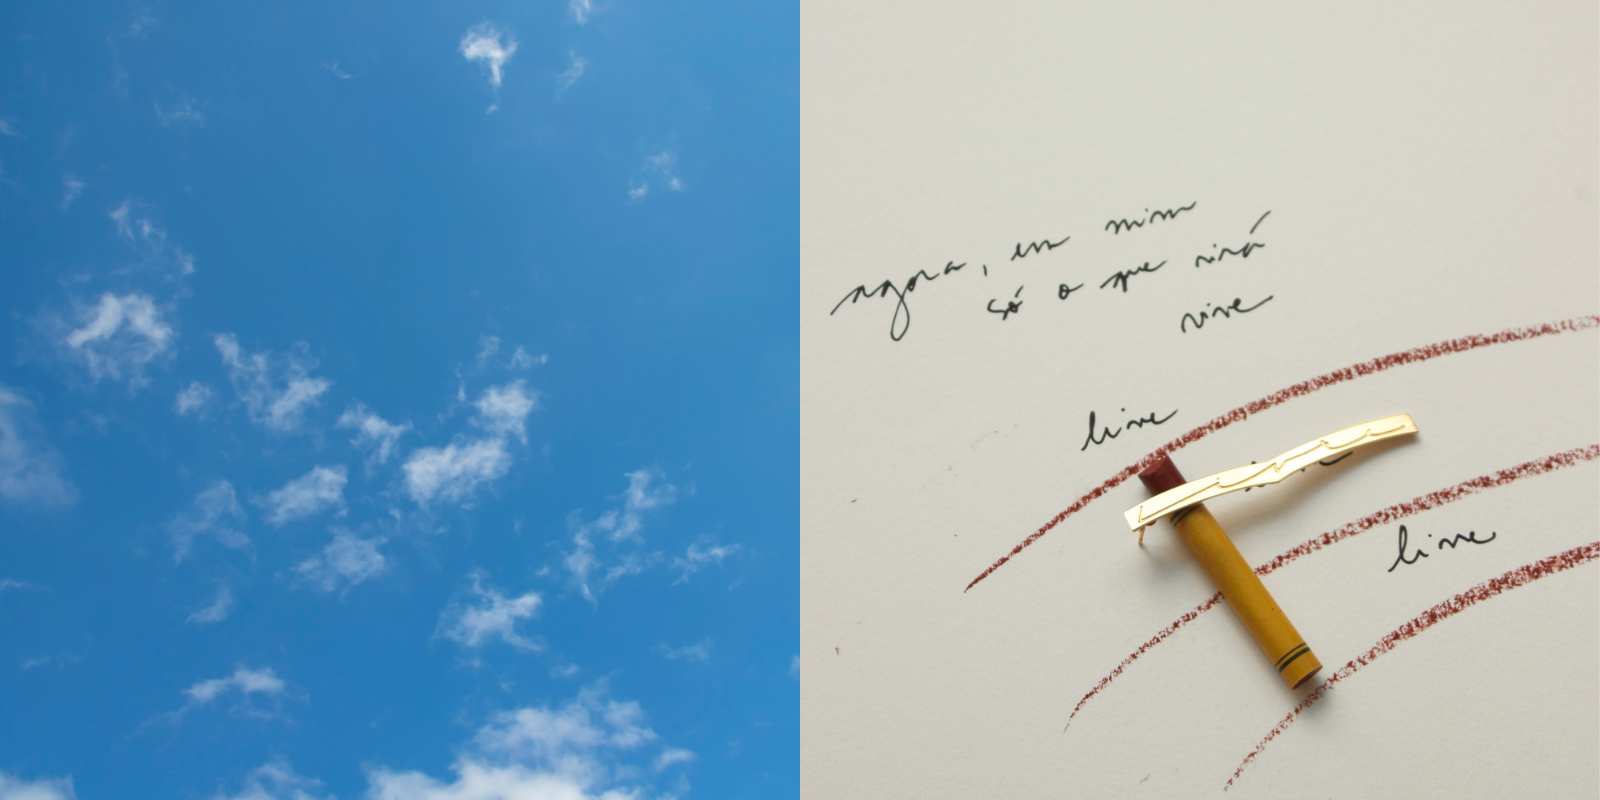 agora, em mim
só o que virá
vive
livre
livre